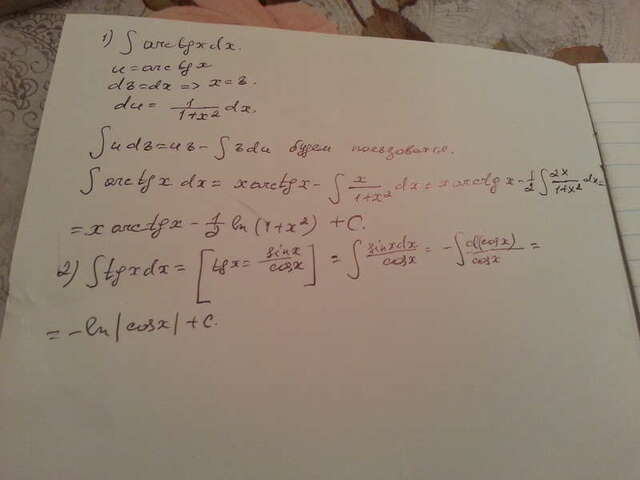 1) ∫ arctgx dx.
u = arctg x
dв = dx => x = в.
du = 1/(1+x²) dx.
∫ u dв = uв - ∫ в du будем пользоваться.
∫ arctg x dx = x arctg x - ∫ x/(1+x²) dx = x arctg x - 1/2 ∫ 2x/(1+x²) dx =
= x arctg x - 1/2 ln (1+x²) + C.
2) ∫ tg x dx = [tg x = sinx/cosx] = ∫ sinx dx/cosx = - ∫ d(cosx)/cosx =
= - ln |cosx| + C.